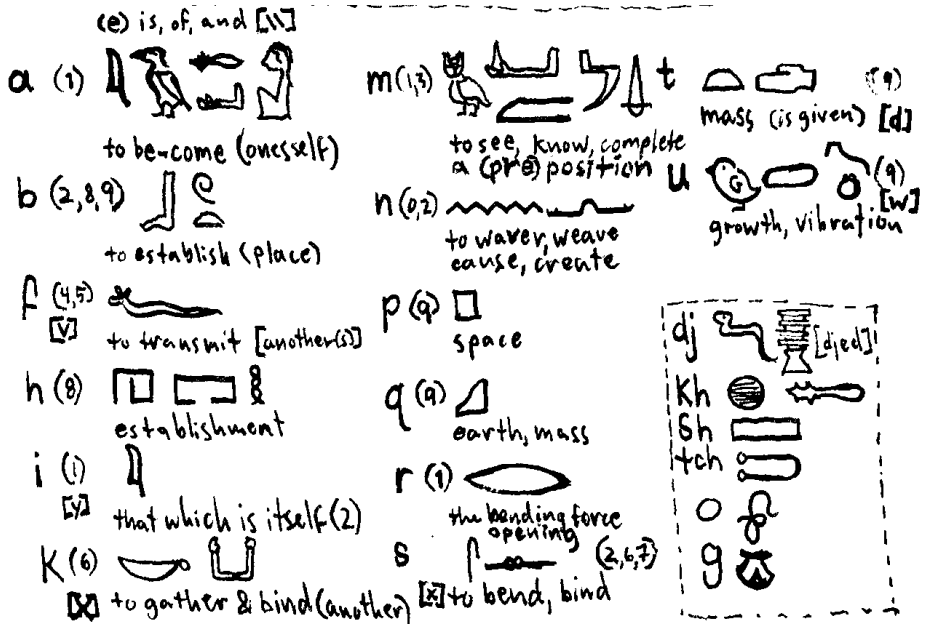 (e) is, of, and [\\]
a (1)
to be-come (onesself)
b (2,8,9)
to establish (place)
f (4,5)
[v]
to transmit [another(s)]
h (8)
establishment
i (1)
[y]
that which is itself (2)
K (6)
to gather & bind (another)
m (1,3)
to see, know, complete
a (pre) position
n (0,2)
to waver, weave
cause, create
p (9)
space
q (9)
earth, mass
r (1)
the bending force
opening
s (2,6,7)
[x] to bend, bind
t (9)
mass (is given) [d]
u (9)
[w]
growth, vibration
dj [djed]
Kh
Sh
tch
o
g